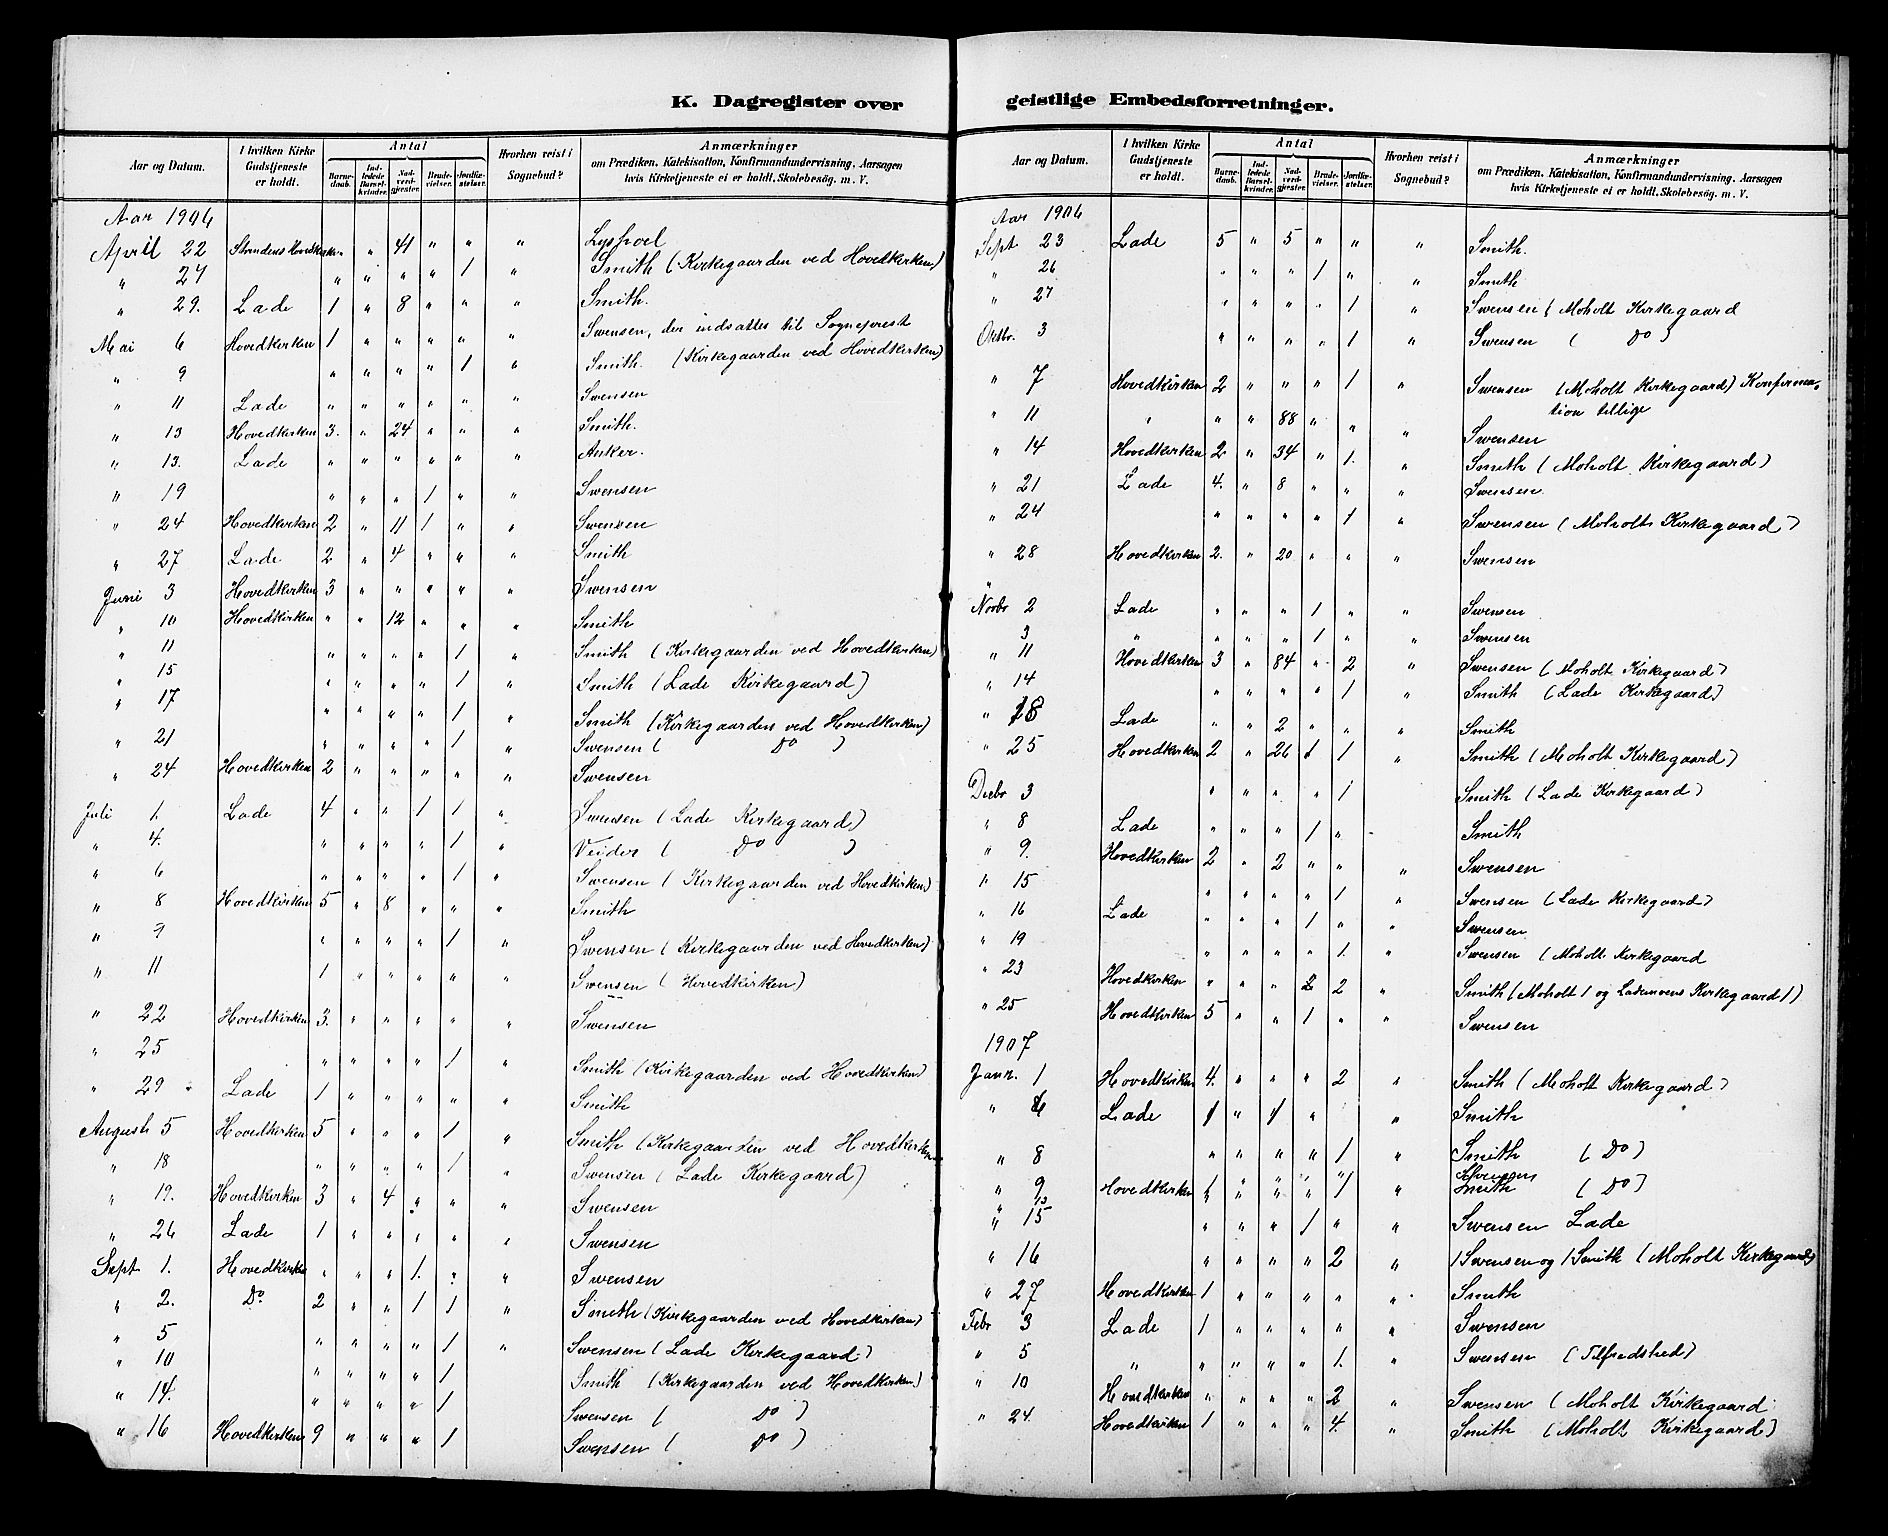 K. Dagregister over
Aar og Datum. | I hvilken Kirke Gudstjeneste er holdt. | Antal | Barnedaab. | Indledede Barselkvinder. | Nadverdgjester. | Brudevielser. | Jordfæstelser. | Hvorhen reist i Sognebud? | Anmærkninger om Prædiken, Katekisation, Konfirmandundervisning, Aarsagen hvis Kirketjeneste ei er holdt, Skolebesøg. m. V.
Aar 1906
April 22 Strindens Hovedkirke " " 41 " " " Lysholm
" 27 " " " " 1 " Smith (Kirkegaarden ved Hovedkirken)
" 29. Lade 1 " 8 " " " Smith.
Mai 6 Hovedkirken 1 " " " " " Swensen, der indsattes til Sogneprest
" 9 " " " " 1 " Smith. (Kirkegaarden ved Hovedkirken)
" 11 Lade " " " " " " Swensen
" 13 Hovedkirken 3. " 24 " " " Smith.
" 13. Lade " " " " " " Anker.
" 19 " " " 1 " " Swensen
" 24 Hovedkirken 2 " 11 1 " " Swensen
" 27 Lade 2 " 4 " " " Smith
Juni 3 Hovedkirken 3 " " " " " Swensen
" 10 Hovedkirken " " 12 " " " Smith
" 11 " " " " 1 " Smith (Kirkegaarden ved Hovedkirken)
" 15 " " " " 1 " Smith (Lade Kirkegaard)
" 17 " " " " 1 " Smith (Kirkegaarden ved Hovedkirken)
" 21 " " " " 1 " Swensen ( Do )
" 24 Hovedkirken 2 " " " " " Swensen
Juli 1. Lade 4 " " 1 1 " Swensen (Lade Kirkegaard)
" 4. " " " " 1 " ( Do )
" 6 " " " " 1 " Swensen (Kirkegaarden ved Hovedkirken)
" 8 Hovedkirken 5 " 8 " " " Smith
" 9 " " " " 1 " Swensen (Kirkegaarden ved Hovedkirken)
" 11 1 " " " " " Swensen (Hovedkirken)
" 22 Hovedkirken 3. " " " " " Swensen
" 25 " " " " 1 " Smith (Kirkegaarden ved Hovedkirken)
" 29 Lade 1 " " " " " Smith
August 5 Hovedkirken 5 " " " 1 " Smith (Kirkegaarden ved Hovedkirken
" 18 " " " " 1 " Swensen (Lade Kirkegaard)
" 19. Hovedkirken 3 " 4 " " " Swensen
" 26 Lade 1 " " " " " Swensen
Sept 1. Hovedkirke " " " 1. " " Swensen
" 2. Do 2 " " 1 1 " Smith (Kirkegaarden ved Hovedkirken)
" 5 " " " " 1 " Swensen (Lade Kirkegaard)
" 10 " " " " 1 Smith (Kirkegaarden ved Hovedkirken)
" 14. " " " " 1 Swensen ( Do )
" 16 Hovedkirken 9 " " " 1 Swensen ( Do )
geistlige Embedsforretninger.
Aar og Datum. | I hvilken Kirke Gudstjeneste er holdt. | Antal | Barnedaab. | Indledede Barselkvinder. | Nadverdgjester. | Brudevielser. | Jordfæstelser. | Hvorhen reist i Sognebud? | Anmærkninger om Prædiken, Katekisation, Konfirmandundervisning, Aarsagen hvis Kirketjeneste ei er holdt, Skolebesøg. m. V.
Aar 1906
Sept 23 Lade 5 " 5 " " " Smith.
" 26 " " " 1 " " Smith
" 27 " " " " 1 " Swensen (Moholt Kirkegaard
Oktbr. 3 " " " " 1 " Swensen ( Do )
" 7 Hovedkirken 2 " " " 1 " Swensen (Moholt Kirkegaard) Konfirma-
tion tillige
" 11 " " " 88 " " " Swensen
" 14 Hovedkirken 2 " 34 " 1. " Smith (Moholt Kirkegaard)
" 21 Lade 4. " 8 " " " Swensen
" 24 " " " " 1 " Swensen (Moholt Kirkegaard)
" 28 Hovedkirken 2. " 20 " " " Swensen
Novbr 2 Lade " " " 1 " " Swensen
3 " " " " 1 " " Swensen
" 11 Hovedkirken 3 " 84 " 2 " Swensen (Moholt Kirkegaard)
" 14 " " " " 1 " Smith (Lade Kirkegaard)
" 18 Lade " " 2 " " " Smith
" 25 Hovedkirken 2 " 26 1 1 " Smith (Moholt Kirkegaard)
Decbr 3 " " " " 1 Smith (Lade Kirkegaard)
" 8 Lade " " " 1 " " Smith
" 9. Hovedkirken 2 " 2 " " " Swensen
" 15 " " " " 1 " Swensen (Lade Kirkegaard)
" 16 Lade " " " 1 " " Swensen
" 19 " " " " 1. " Swensen (Moholt Kirkegaard
" 23 Hovedkirken " " " 2 2 " Smith (Moholt 1 og Lademoens Kirkegaard 1)
" 25 Hovedkirken 5 " " 1 " " Swensen
1907
Janr. 1 Hovedkirken 4. " " " 2 " Smith (Moholt Kirkegaard)
" 6 Lade 1 " 1 " " Smith
" 8 " " " " 1 " Smith (Do)
" 9 Hovedkirken 1 " " " 1 " Smith (Do)
" 15 " " " 1 " " Swensen Lade
" 16 " " " " 2 " 1 Swensen og 1 Smith (Moholt Kirkegaard)
" 27 Hovedkirken 1 " " " " " Smith
Febr 3 Lade 1 " " " " " Swensen
" 5 " " " " " 1. " Swensen (Tilfredshed)
" 10 Hovedkirken " " " " 2 " Swensen (Moholt Kirkegaard
" 24. Hovedkirken 1 " " " 4. " Smith (Moholt Kirkegaard)